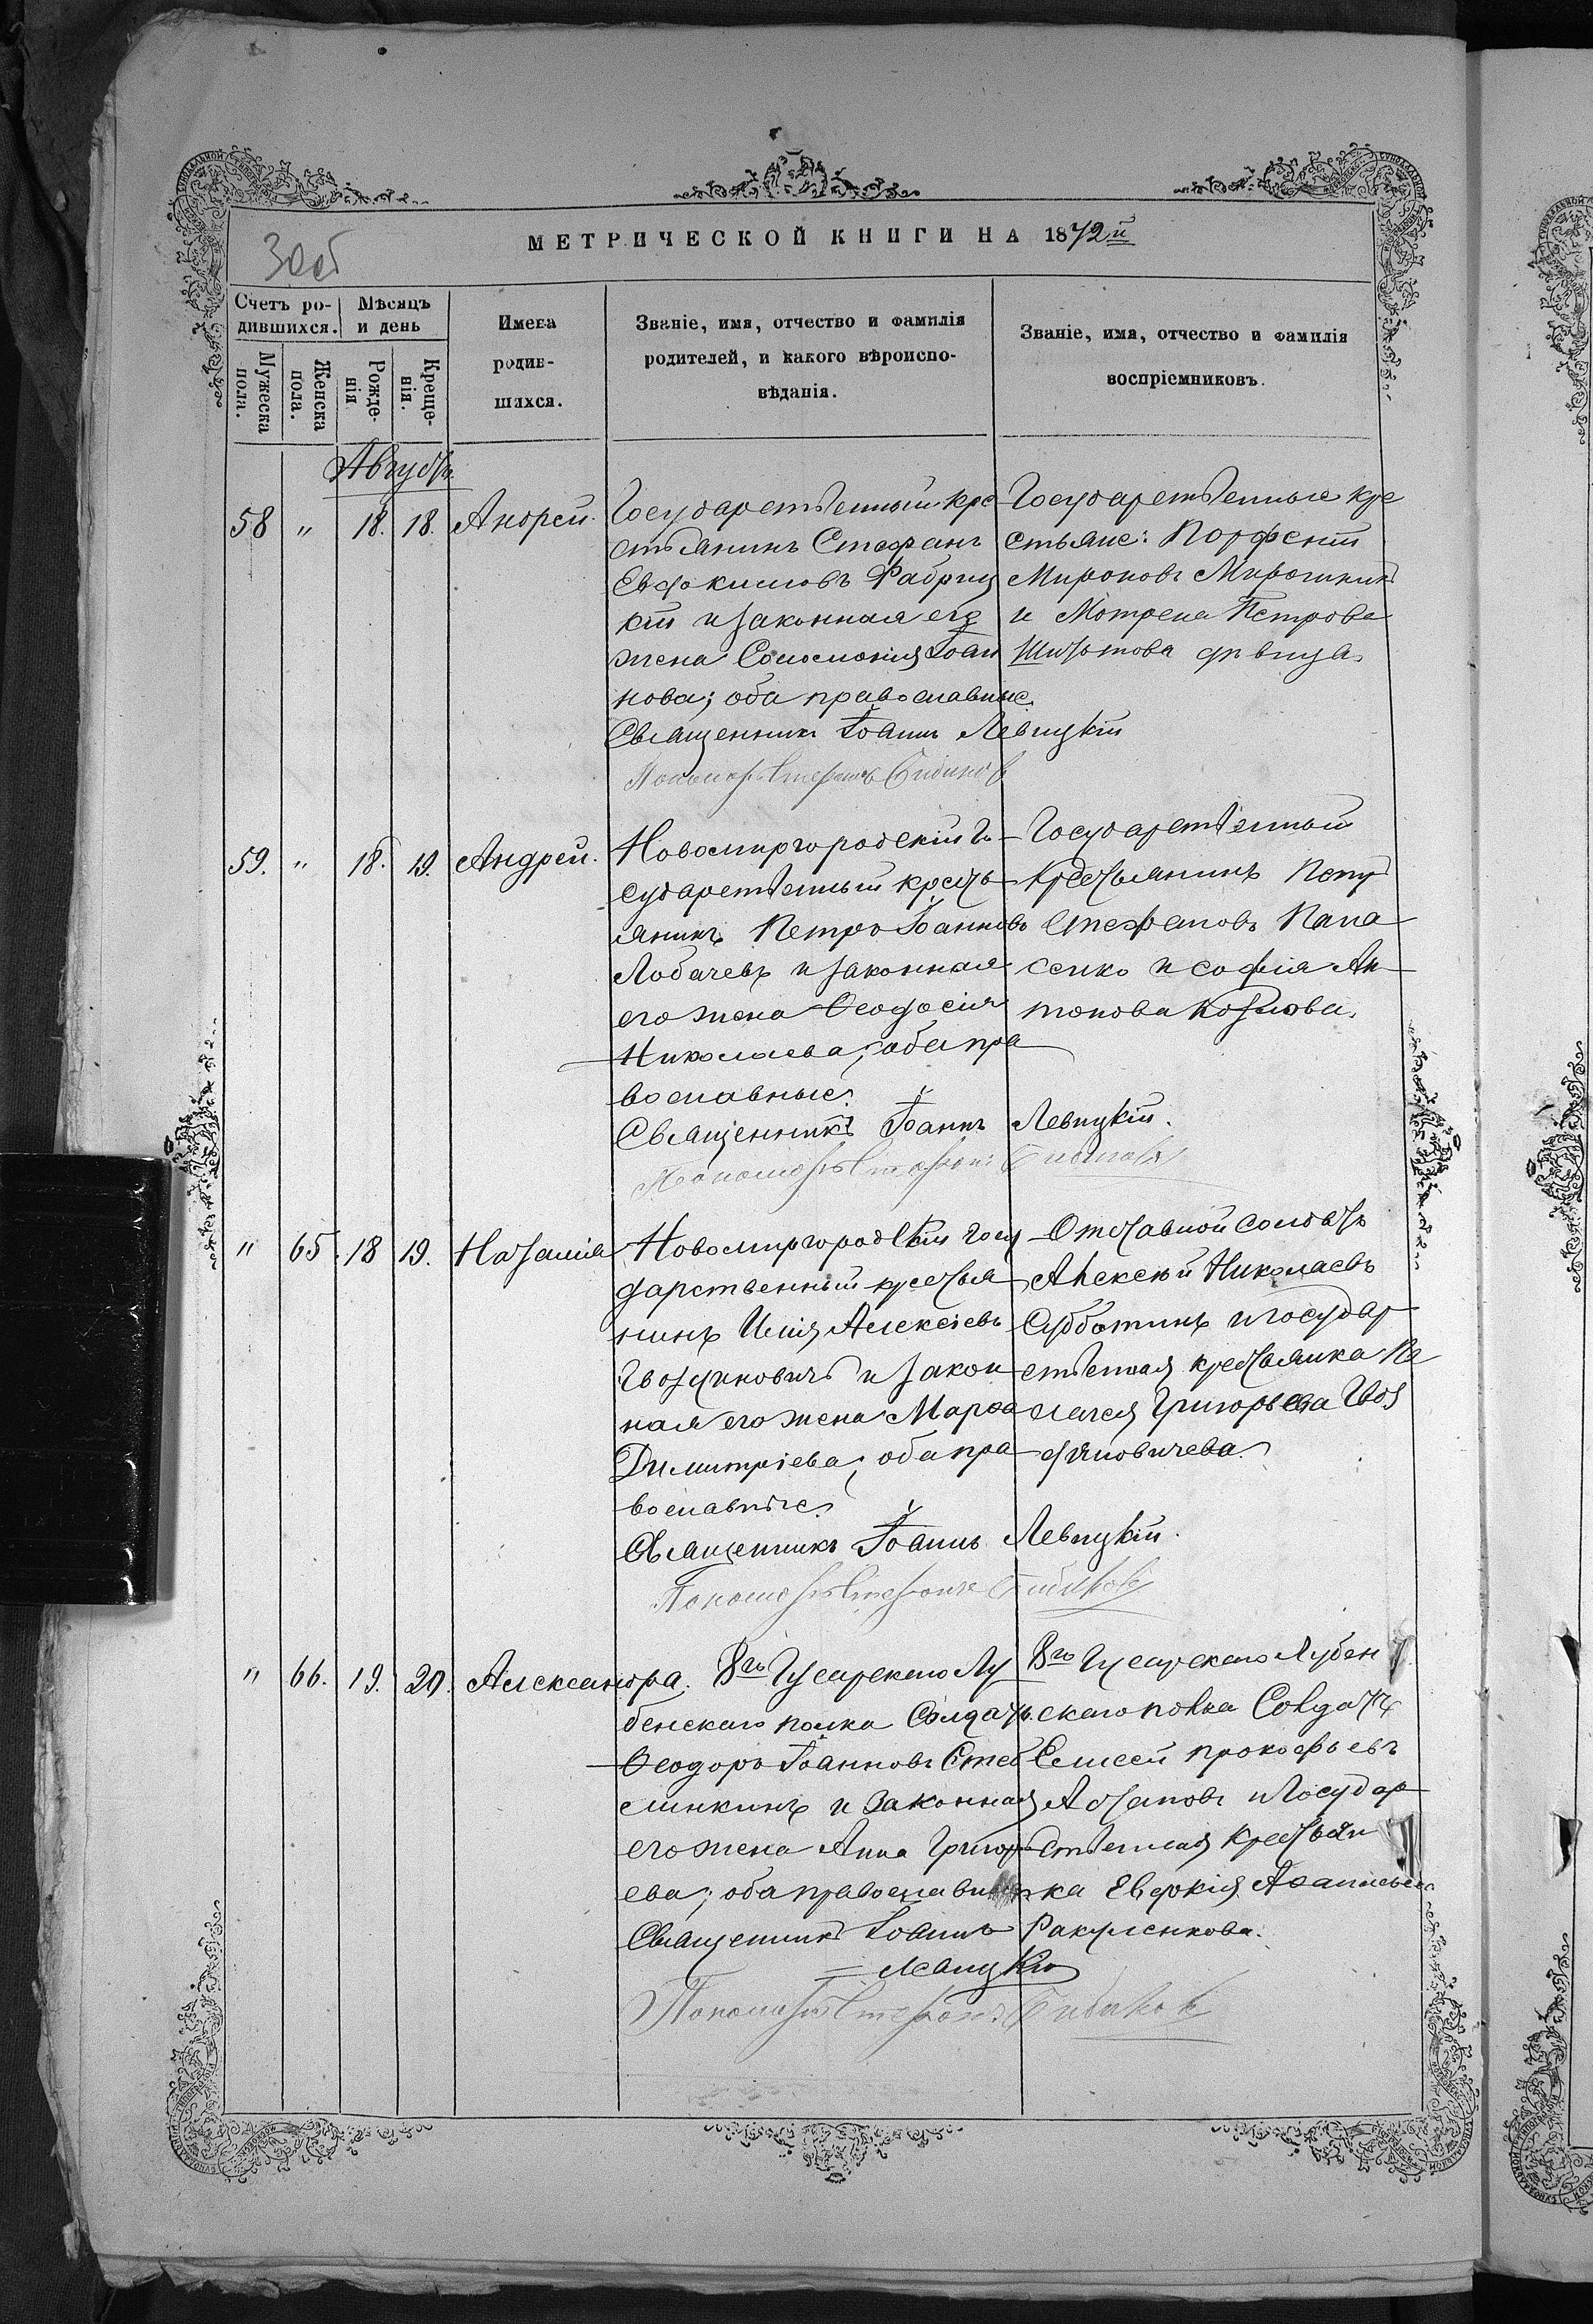 30об
МЕТРИЧЕСКОЙ КНИГИ НА 1872й
Счетъ ро-
дившихся.
Мѣсяцъ
и день
Мужеска
пола.
Женска
пола.
Рожде-
нія
Креще-
нія.
Имена
родив-
шихся.
Званіе, имя, отчество и фамилія
родителей, и какого вѣроиспо-
вѣданія.
Званіе, имя, отчество и фамилія
воспріемниковъ.
Августъ
58 " 18. 18. Андрей.
Государственный кре
стьянинъ Стефанъ
Евфокимовъ Фабриц
кій и законная его
жена Соломонія Іоан
нова; оба православные.
Священникъ Іоаннъ Левицкій
Пономарь Стефанъ Бибиковъ
Государственные кре
стьяне: Порфирій
Мироновъ Мирошник
и Мотрена Петрова
девица
59. " 18. 19. Андрей.
Новомиргородскій Го
сударственный кресть
янинъ Петръ Іоанновъ
Лобачевъ и законная
его жена Ѳеодосія
Николаева; оба пра
вославные.
Священникъ Іоаннъ Левицкій.
Пономарь Стефанъ Бибиковъ
Государственный
крестьянинъ Петр
Стефановъ Пана
сенко и Софія Ан
тонова Козлова.
" 65. 18 19. Наталія
Новомиргородскій госу
дарственный крестья
нинъ Илія Алексіевъ
Гвозdиковичъ и закон
ная его жена Марѳа
Димитріева; оба пра
вославные.
Священникъ Іоаннъ Левицкій.
Пономарь Стефанъ Бибиковъ
Отставной солдатъ
Алексѣй Николаевъ
Субботинъ и государ
ственная крестьянка Пе
лагея Григорьева Гвоз
" 66. 19. 20. Александра.
8го Гусарскаго Лу
бенскаго полка Солдатъ
Ѳеодоръ Іоанновъ Стеб
линкинъ и законная
его жена Анна Григорь
ева; оба православные
Священникъ Іоаннъ
Левицкій
Пономарь Стефанъ Бибиковъ
8го Гусарскаго Лубен
скаго полка Солдатъ
Елисей Прокофьевъ
Астаповъ и Государ
ственная крестьян
ка Евдокія Аѳанасьева